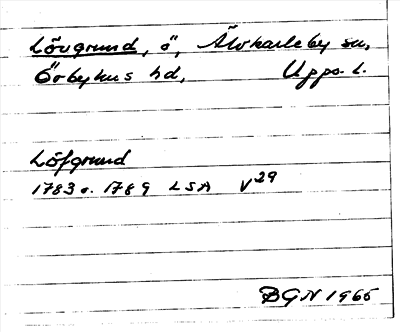 Lövgrund, ö, Älvkarleby sn,
Örbyhus hd, Upps. l.
Löfgrund
1783 o. 1789 LSA V29
BGN 1965